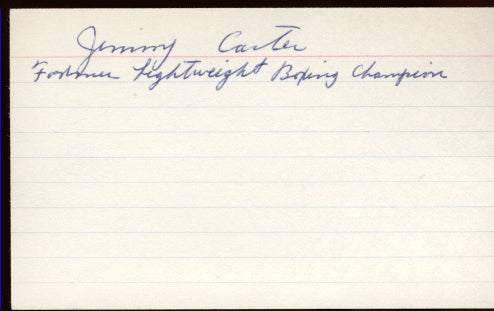 Jimmy Carter
Former Lightweight Boxing Champion